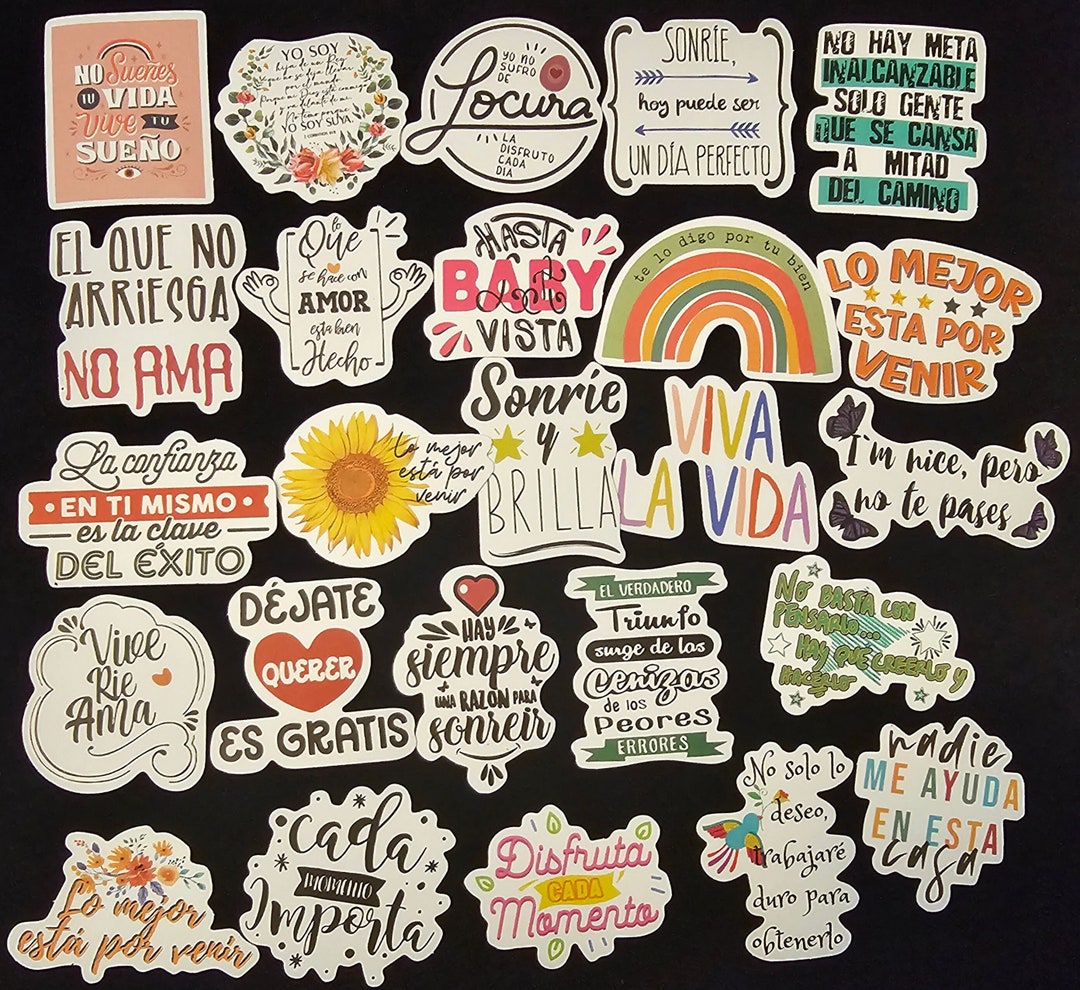 NO Sueñes
TU VIDA
Vive TU
SUEÑO
YO SOY
hija de un Rey
YO SOY SUYA.
yo no
sufro
de
Locura
LA
DISFRUTO
CADA
DIA
SONRÍE,
hoy puede ser
UN DÍA PERFECTO
NO HAY META
INALCANZABLE
SOLO GENTE
QUE SE CANSA
A MITAD
DEL CAMINO
EL QUE NO
ARRIESGA
NO AMA
lo
Que
se hace con
AMOR
esta bien
Hecho
HASTA
BABY
VISTA
te lo digo por tu bien
LO MEJOR
ESTA POR
VENIR
La confianza
EN TI MISMO
es la clave
DEL ÉXITO
Lo mejor
está por
venir
Sonríe
y
BRILLA
VIVA
LA VIDA
I'm nice, pero
no te pases
Vive
Rie
Ama
DÉJATE
QUERER
ES GRATIS
HAY
siempre
UNA RAZÓN PARA
sonreír
EL VERDADERO
Triunfo
surge de las
cenizas
de los
Peores
ERRORES
NO BASTA CON
PENSARLO...
HAY QUE CREERLO Y
HACERLO
Lo mejor
está por venir
cada
MOMENTO
Importa
Disfruta
CADA
Momento
No solo lo
deseo,
trabajaré
duro para
obtenerlo
nadie
ME AYUDA
EN ESTA
casa